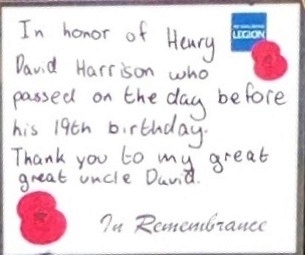 In honor of Henry
LEGION
David Harrison who
passed on the day before
his 19th birthday.
Thank you to my great
great uncle David.
In Remembrance